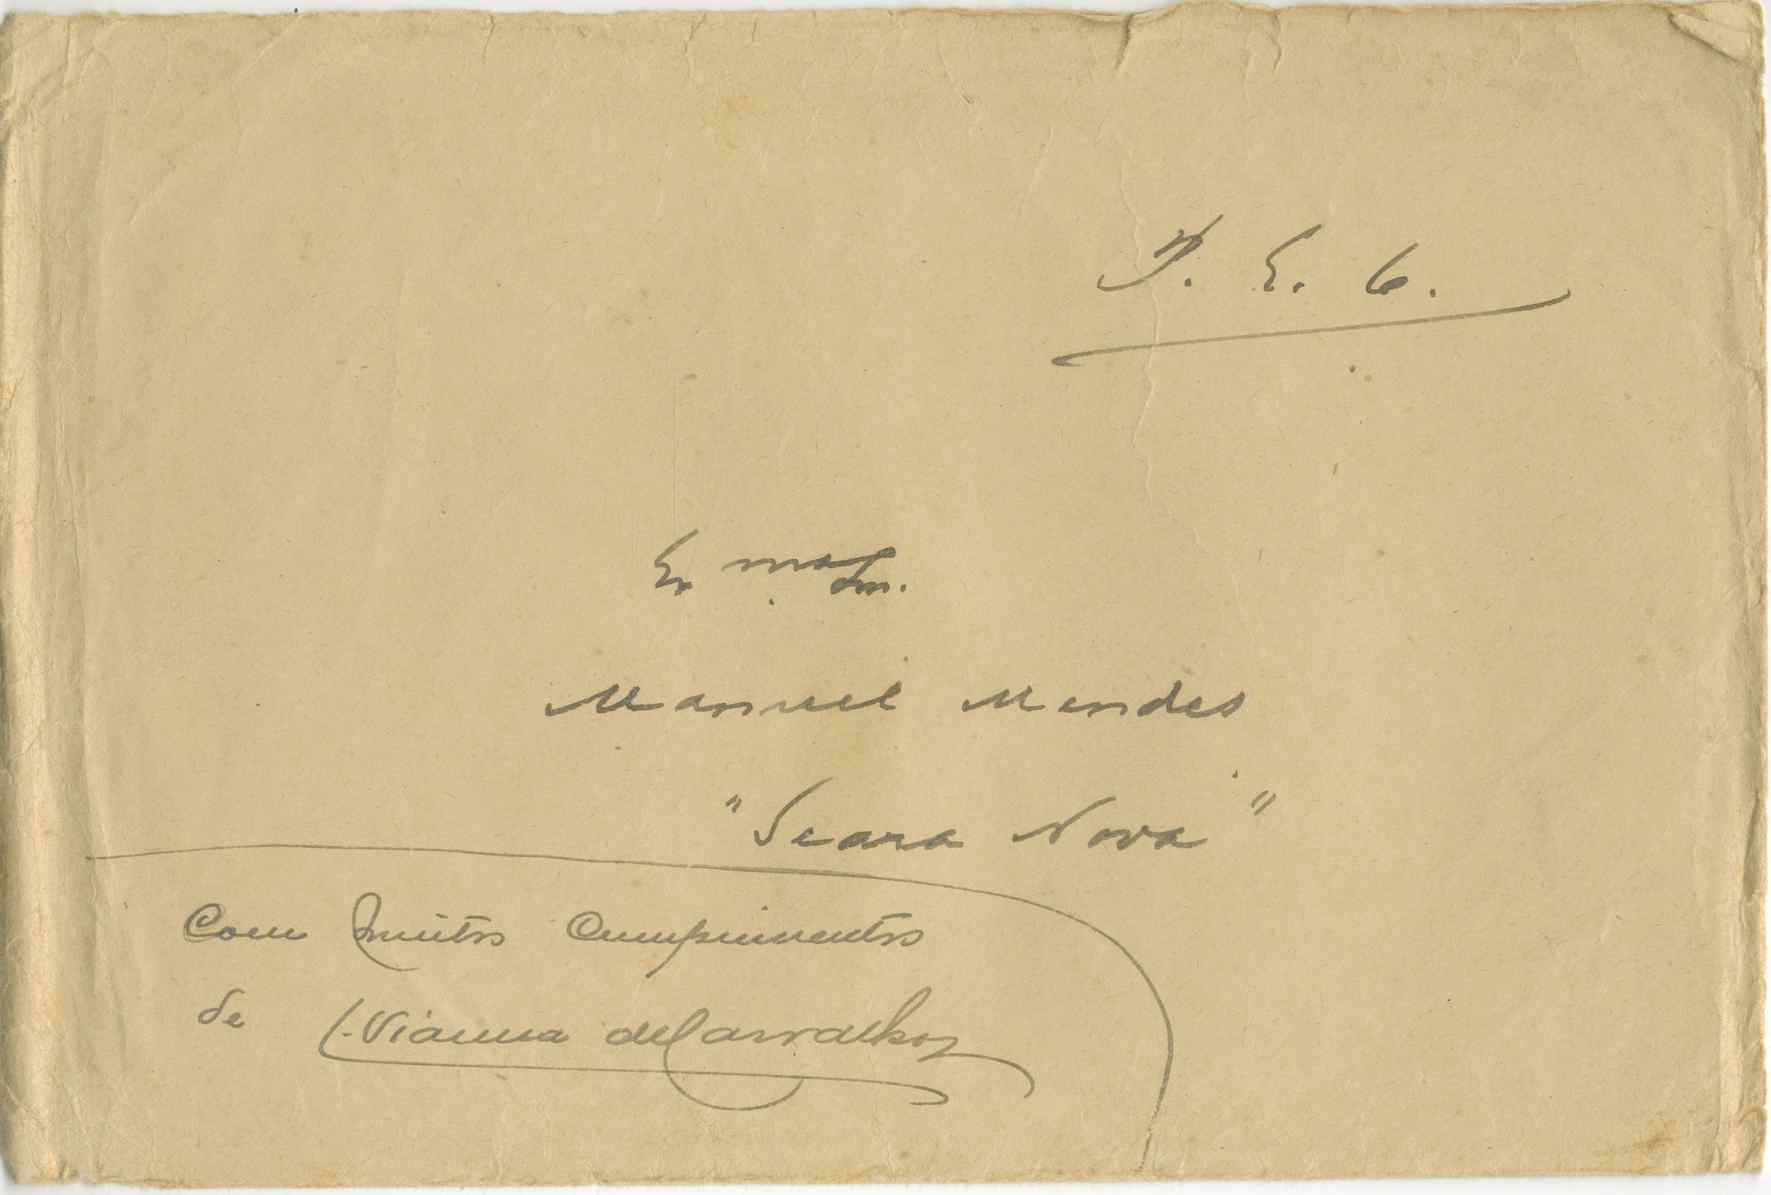 P. E. C.
Exmo Sr.
Manuel Mendes
"Seara Nova"
Com muitos Cumprimentos
de L. Vianna de Carvalho